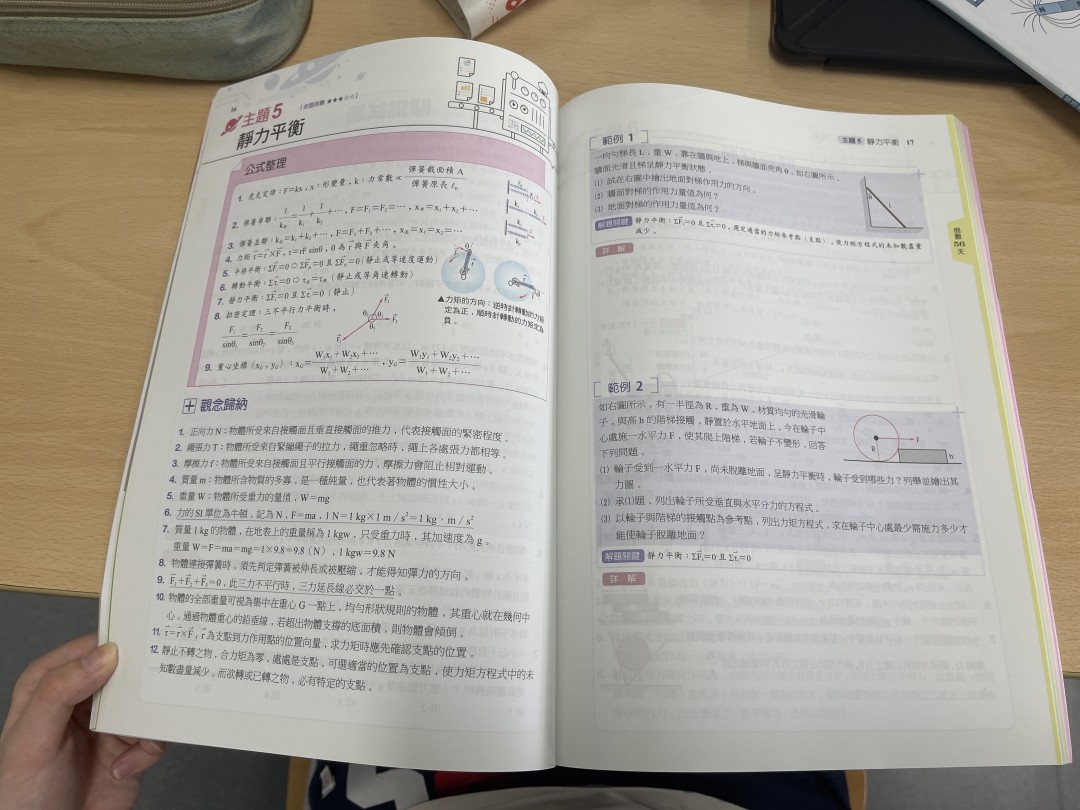 主題5
靜力平衡
公式整理
1. 虎克定律：F=kx，x：形變量，k：力常數∝彈簧截面積 A／彈簧原長 ℓ₀
2. 彈簧串聯：1/k串=1/k₁+1/k₂+…，F=F₁=F₂=…，x串=x₁+x₂+…
3. 彈簧並聯：k並=k₁+k₂+…，F=F₁+F₂+…，x並=x₁=x₂=…
4. 力矩 τ⃗=r⃗×F⃗，τ=rF sinθ，θ 為 r⃗ 與 F⃗ 夾角。
5. 平移平衡：ΣF⃗ᵢ=0
(靜止或等速度運動)
6. 轉動平衡：Στ⃗ᵢ=0
(靜止或等角速轉動)
7. 靜力平衡：ΣF⃗ᵢ=0 且 Στ⃗ᵢ=0（靜止）
8. 拉密定理：三不平行力平衡時，
F₁/sinθ₁=F₂/sinθ₂=F₃/sinθ₃
▲力矩的方向：逆時針轉動的力矩
定為正，順時針轉動的力矩定為
負。
9. 重心坐標（x_G，y_G）：x_G=(W₁x₁+W₂x₂+…)/(W₁+W₂+…)，y_G=(W₁y₁+W₂y₂+…)/(W₁+W₂+…)
觀念歸納
1. 正向力 N：物體所受來自接觸面且垂直接觸面的推力，代表接觸面的緊密程度。
2. 繩張力 T：物體所受來自緊繃繩子的拉力，繩重忽略時，繩上各處張力都相等。
3. 摩擦力 f：物體所受來自接觸面且平行接觸面的力，摩擦力會阻止相對運動。
4. 質量 m：物體所含物質的多寡，是一種純量，也代表著物體的慣性大小。
5. 重量 W：物體所受重力的量值，W=mg
6. 力的 SI 單位為牛頓，記為 N，F=ma，1 N=1 kg×1 m／s²=1 kg · m／s²
7. 質量 1 kg 的物體，在地表上的重量稱為 1 kgw，只受重力時，其加速度為 g。
重量 W=F=ma=mg=1×9.8=9.8（N），1 kgw=9.8 N
8. 物體連接彈簧時，須先判定彈簧被伸長或被壓縮，才能得知彈力的方向。
9. F⃗₁+F⃗₂+F⃗₃=0，此三力不平行時，三力延長線必交於一點。
10. 物體的全部重量可視為集中在重心 G 一點上，均勻形狀規則的物體，其重心就在幾何中
心。通過物體重心的鉛垂線，若超出物體支撐的底面積，則物體會傾倒。
11. τ⃗=r⃗×F⃗，r⃗ 為支點到力作用點的位置向量，求力矩時應先確認支點的位置。
12. 靜止不轉之物，合力矩為零，處處是支點，可選適當的位置為支點，使力矩方程式中的未
知數盡量減少。而欲轉或已轉之物，必有特定的支點。
主題5 靜力平衡 17
倒數
56
天
範例 1
一均勻梯長 L，重 W，靠在牆與地上，梯與牆面夾角 θ，如右圖所示，
牆面光滑且梯呈靜力平衡狀態。
(1) 試在右圖中繪出地面對梯作用力的方向。
(2) 牆面對梯的作用力量值為何？
(3) 地面對梯的作用力量值為何？
θ
L
解題關鍵 靜力平衡：ΣF⃗ᵢ=0 且 Στ⃗ᵢ=0，選定適當的力矩參考點（支點），使力矩方程式的未知數盡量
減少。
詳解
範例 2
如右圖所示，有一半徑為 R，重為 W，材質均勻的光滑輪
子，與高 h 的階梯接觸，靜置於水平地面上。今在輪子中
心處施一水平力 F，使其爬上階梯，若輪子不變形，回答
下列問題。
F
R
h
(1) 輪子受到一水平力 F，尚未脫離地面，呈靜力平衡時，輪子受到哪些力？列舉並繪出其
力圖。
(2) 承(1)題，列出輪子所受垂直與水平分力的方程式。
(3) 以輪子與階梯的接觸點為參考點，列出力矩方程式，求在輪子中心處最少需施力多少才
能使輪子脫離地面？
解題關鍵 靜力平衡：ΣF⃗ᵢ=0 且 Στ⃗ᵢ=0
詳解